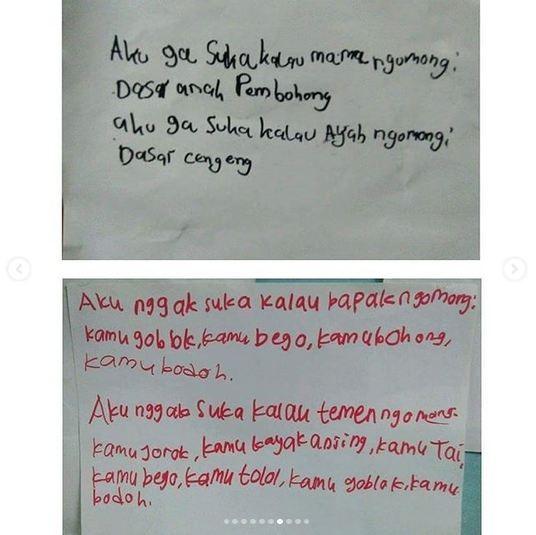 Aku ga Suka kalau mama ngomong:
Dasar anak Pembohong
aku ga suka kalau Ayah ngomong:
Dasar cengeng
Aku nggak suka kalau bapak ngomong:
kamu goblok, kamu bego, kamu bohong,
kamu bodoh.
Aku nggak suka kalau temen ngomong
kamu jorok, kamu kayak anjing, kamu Tai,
kamu bego, kamu tolol, kamu goblok, kamu
bodoh.